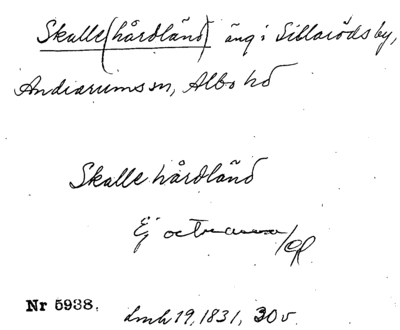 Skalle (hårdländ) äng i Sillaröds by,
Andrarums sn, Albo hd
Skalle hårdländ
Ej
Nr 5938.
lmh 19, 1831, 30 v